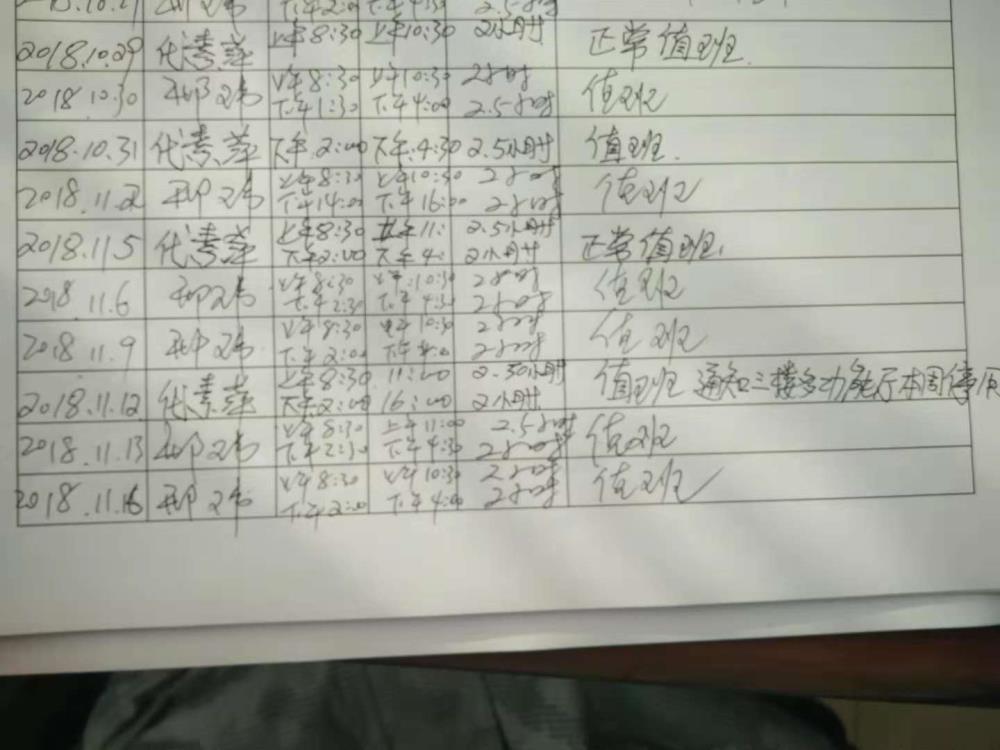 下午2:00 下午4:30 2.5小时
2018.10.29 代秀萍 上午8:30 上午10:30 2小时 正常值班.
2018.10.30 上午8:30 上午10:30 2小时 值班
下午1:30 下午4:00 2.5小时
2018.10.31 代秀萍 下午.2:00 下午.4:30 2.5小时 值班.
2018.11.2 上午8:30 上午10:30 2小时 值班
下午14:00 下午16:00 2小时
2018.11.5 代秀萍 上午8:30 上午11: 2.5小时 正常值班.
下午2:00 下午4: 2小时
2018.11.6 上午8:30 上午.10:30 2小时 值班
下午2:30 下午4:30 2小时
2018.11.9 上午8:30 上午10:30 2小时 值班
下午2:00 下午4:0 2小时
2018.11.12 代秀萍 上午8:30 11:00 2.30小时 值班 通知三楼多功能厅本周停用
下午2:00 16:00 2小时
2018.11.13 上午8:30 上午11:00 2.5小时 值班
下午2:30 下午4:30 2小时
2018.11.16 上午8:30 上午10:30 2小时 值班
下午2:00 下午4:00 2小时